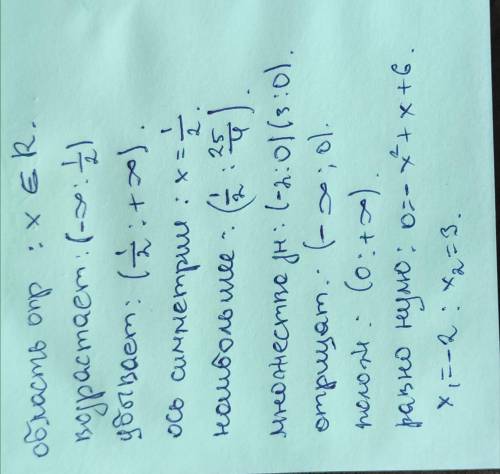 область опр : x ∈ R.
возрастает: (-∞ : 1/2)
убывает: (1/2 : +∞).
ось симметрии : x = 1/2.
наибольшее : (1/2 : 25/4).
множество зн: (-2:0) (3:0).
отрицат. : (-∞ ; 0).
полож : (0 : +∞).
равно нулю : 0 = -x² + x + 6.
x₁ = -2 : x₂ = 3.